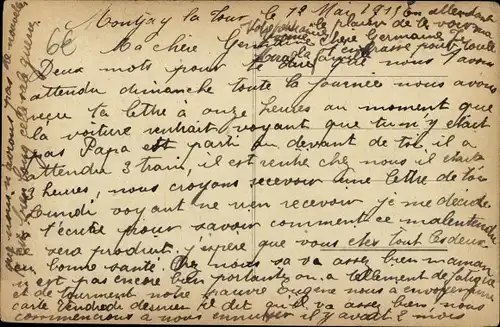 Montjay la Tour le 12 Mai 1915 en attendant
le plaisir de te voir ma
chère Germaine je
t'embrasse pour toute
la famille
6€
Ma chère Germaine
Deux mots pour te dire que nous t'avons
attendu dimanche toute la journée nous avons
reçue ta lettre à onze heures au moment que
la voiture rentrait, voyant que tu n'y était
pas Papa est parti au devant de toi, il a
attendu 3 train, il est rentré chez nous il était
3 heures, nous croyons recevoir une lettre de toi
Lundi voyant ne rien recevoir je me decide
t'écrire pour savoir comment ce malentendu
sera produit, j'espère que vous êtes tout les deux
en bonne santé. Chez nous sa va assez bien maman
n'est pas encore bien portante on a tellement de fatigue
et de tourment notre pauvre Eugène nous a envoyer une
carte Vendredi dernier il dit qu'il va assez bien, nous
commencions a nous ennuyer il y avait 2 mois
que nous n'avions pas de nouvelle